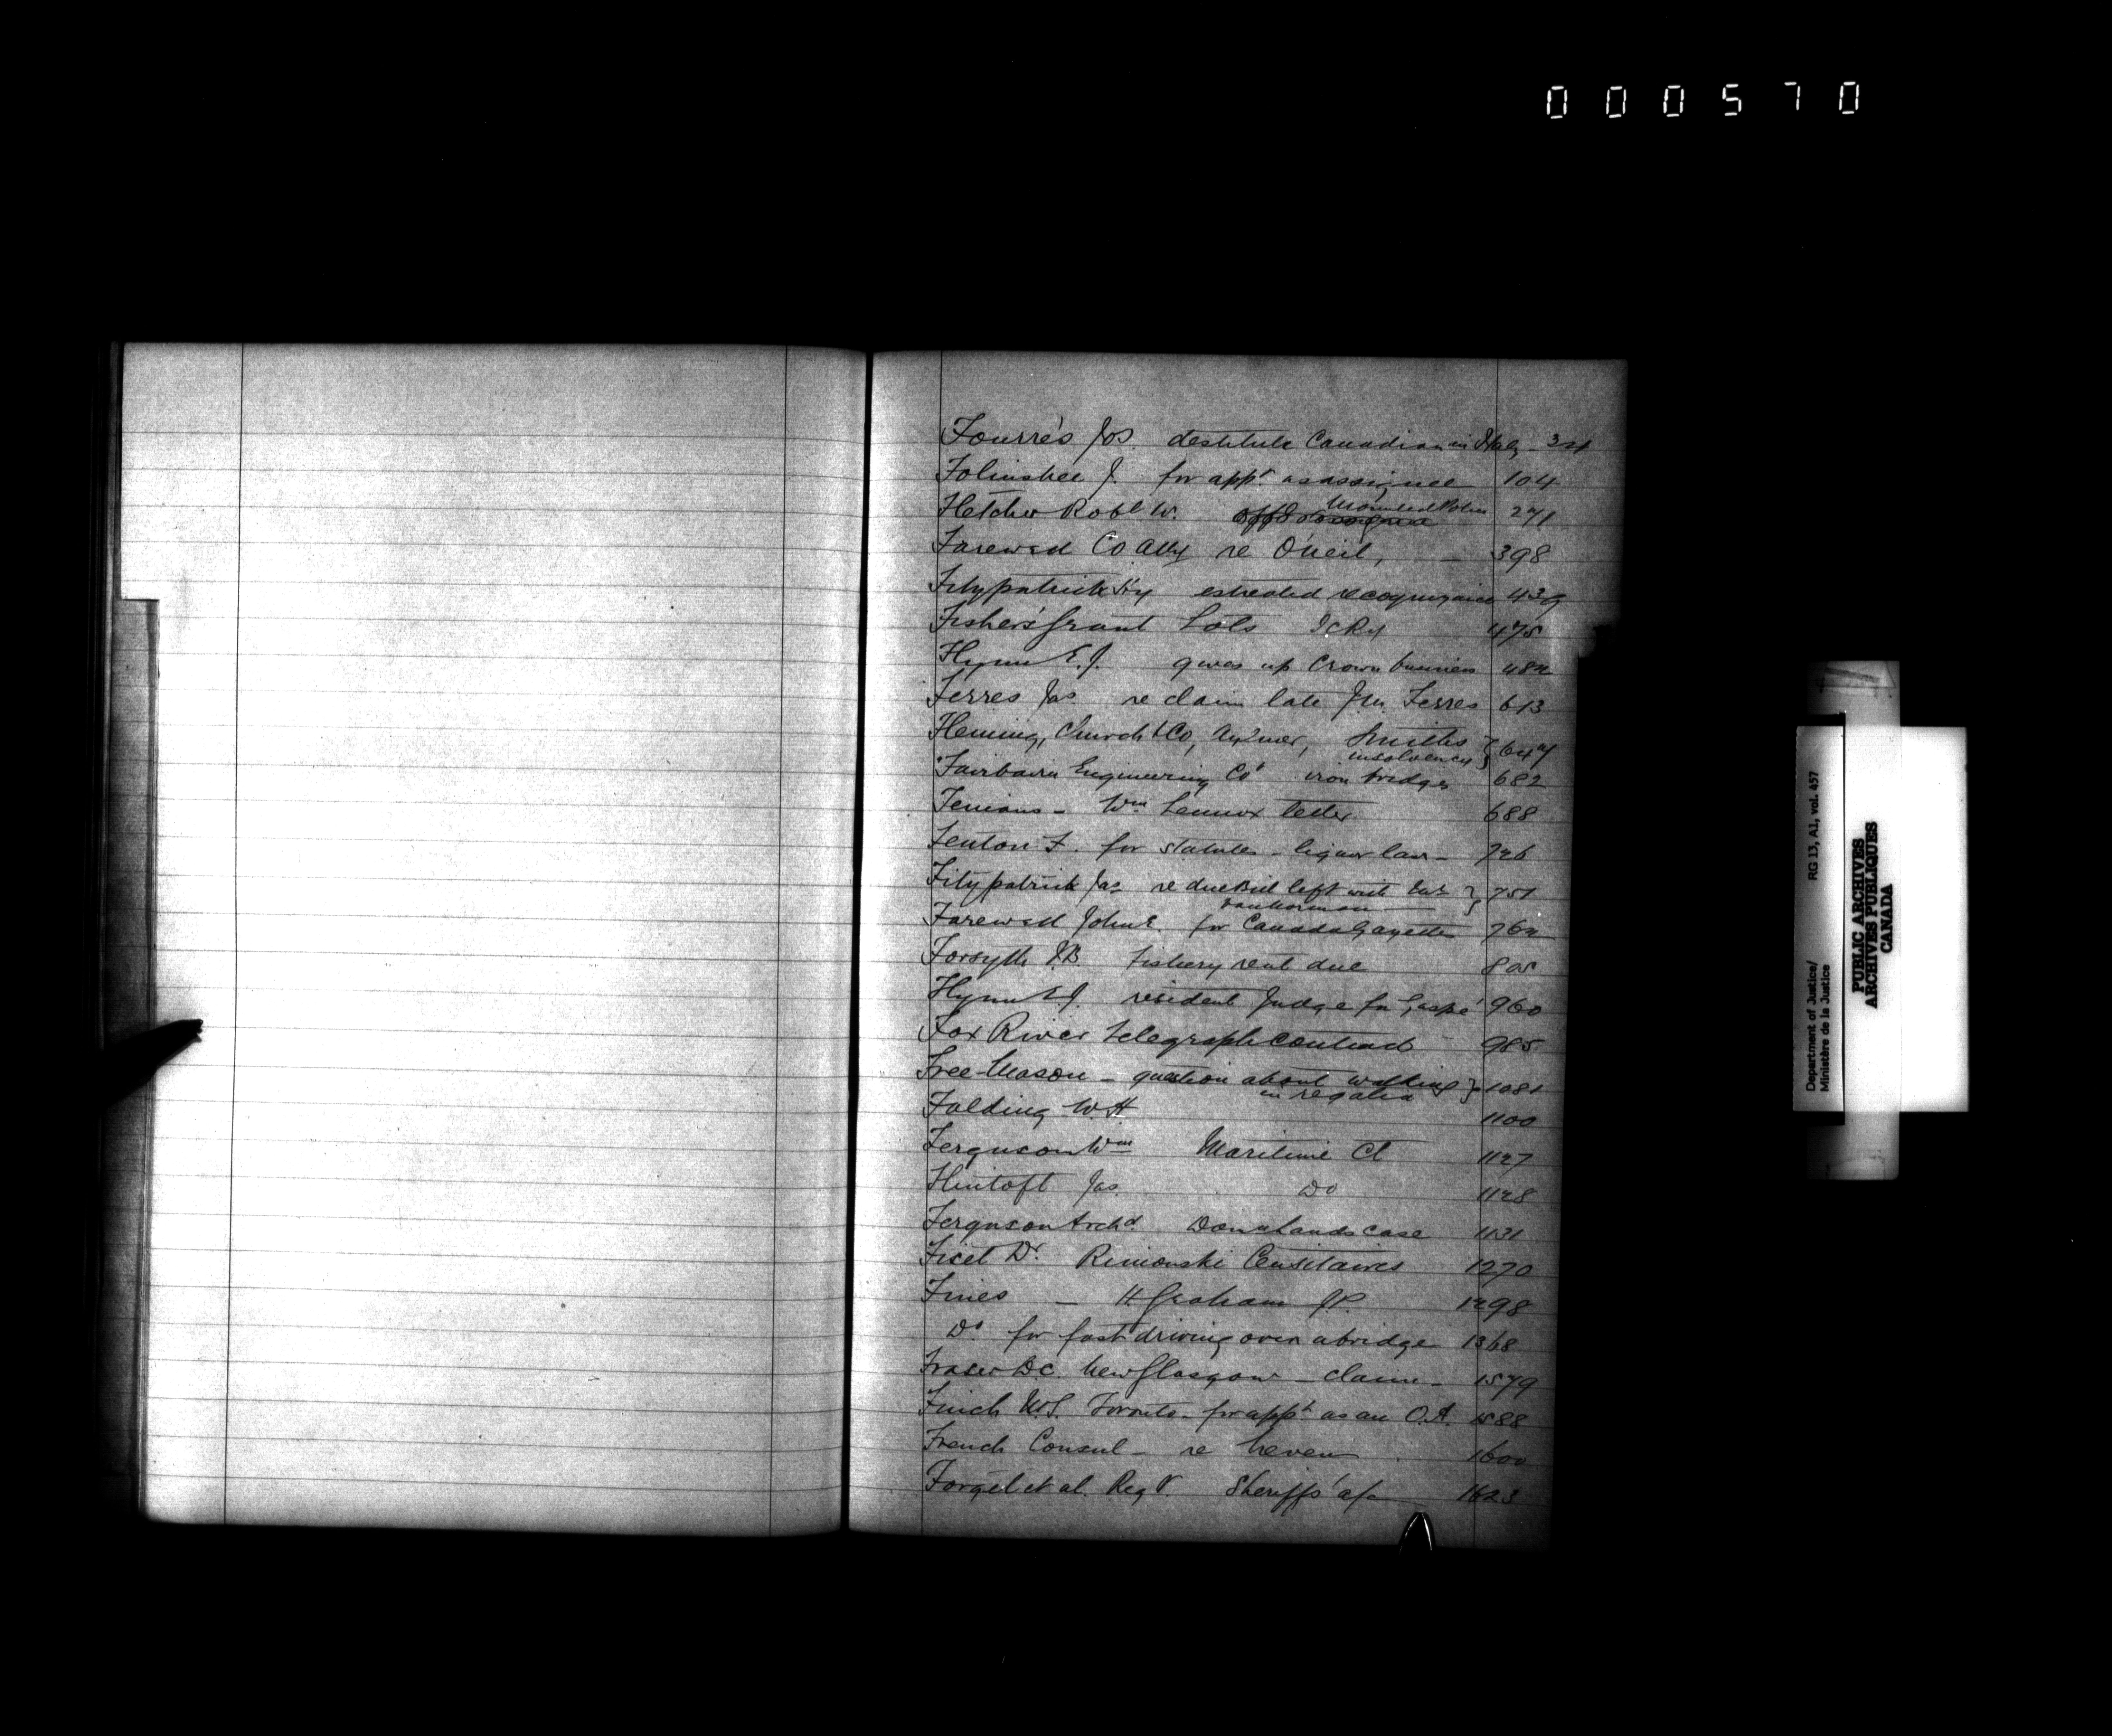 000570
Fourrés Jos. destitute Canadian in Italy - 34
Folinsbee J. for appt as assignee 104
Fletcher Robt W. Mounted Police 271
Farewell Co Atty re O'Neil, 398
Fitzpatrick estreated recognizance 439
Fishers' Grant Lots IcRy 475
Flynn E.J. gives up Crown business 482
Ferres Jas re claim late Jas. Ferres 613
Fleming, Church & Co, Aylmer, Smiths
insolvency } 644
Fairbairn Engineering Co' iron bridges 682
Fenians - Wm Lennox letter 688
Fenton F. for statutes - liquor law - 726
Fitzpatrick Jas re due Bill left with
vanNorman } 751
Farewell John E. for Canada Gazette 762
Forsyth J.B. Fishery rent due 805
Flynn E.J. resident Judge for Gaspé 960
Fox River Telegraph contract 985
Free-Mason - question about walking
in regalia } 1081
Falding W.H 1100
Ferguson Wm Maritime Ct 1127
Flintoft Jas. Do 1128
Ferguson Archd. Domn Lands case 1131
Fiset Dr. Rimouski Censitaires 1270
Fines - H Graham J.P. 1298
Do for fast driving over a bridge 1368
Fraser D.C. New Glasgow - claim - 1579
Finch W.S. Toronto - for appt as an O.A. 1588
French Consul - re 1600
Forget et al. Reg V. Sheriffs' a/c 1623
Department of Justice/ RG 13, A1, vol. 457
Ministère de la Justice
PUBLIC ARCHIVES
ARCHIVES PUBLIQUES
CANADA